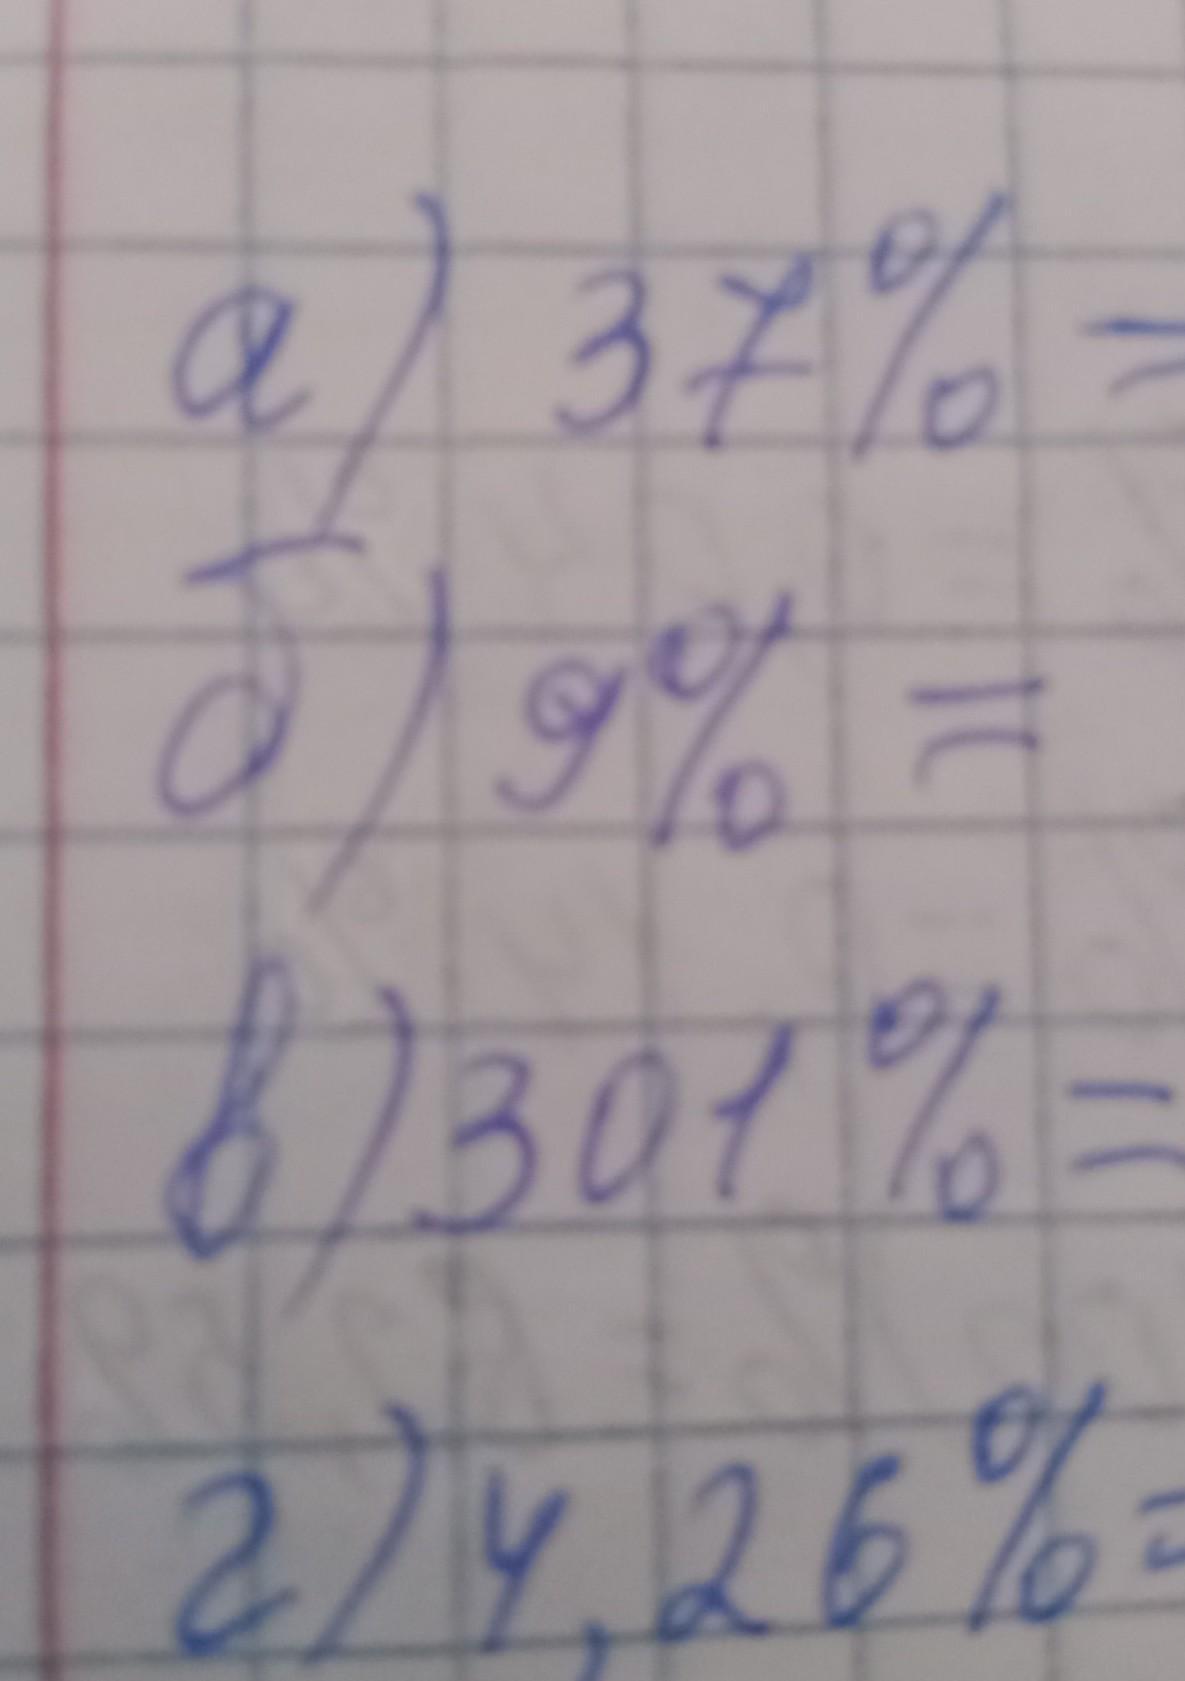 а) 37% =
б) 9% =
в) 301% =
г) 4,26% =